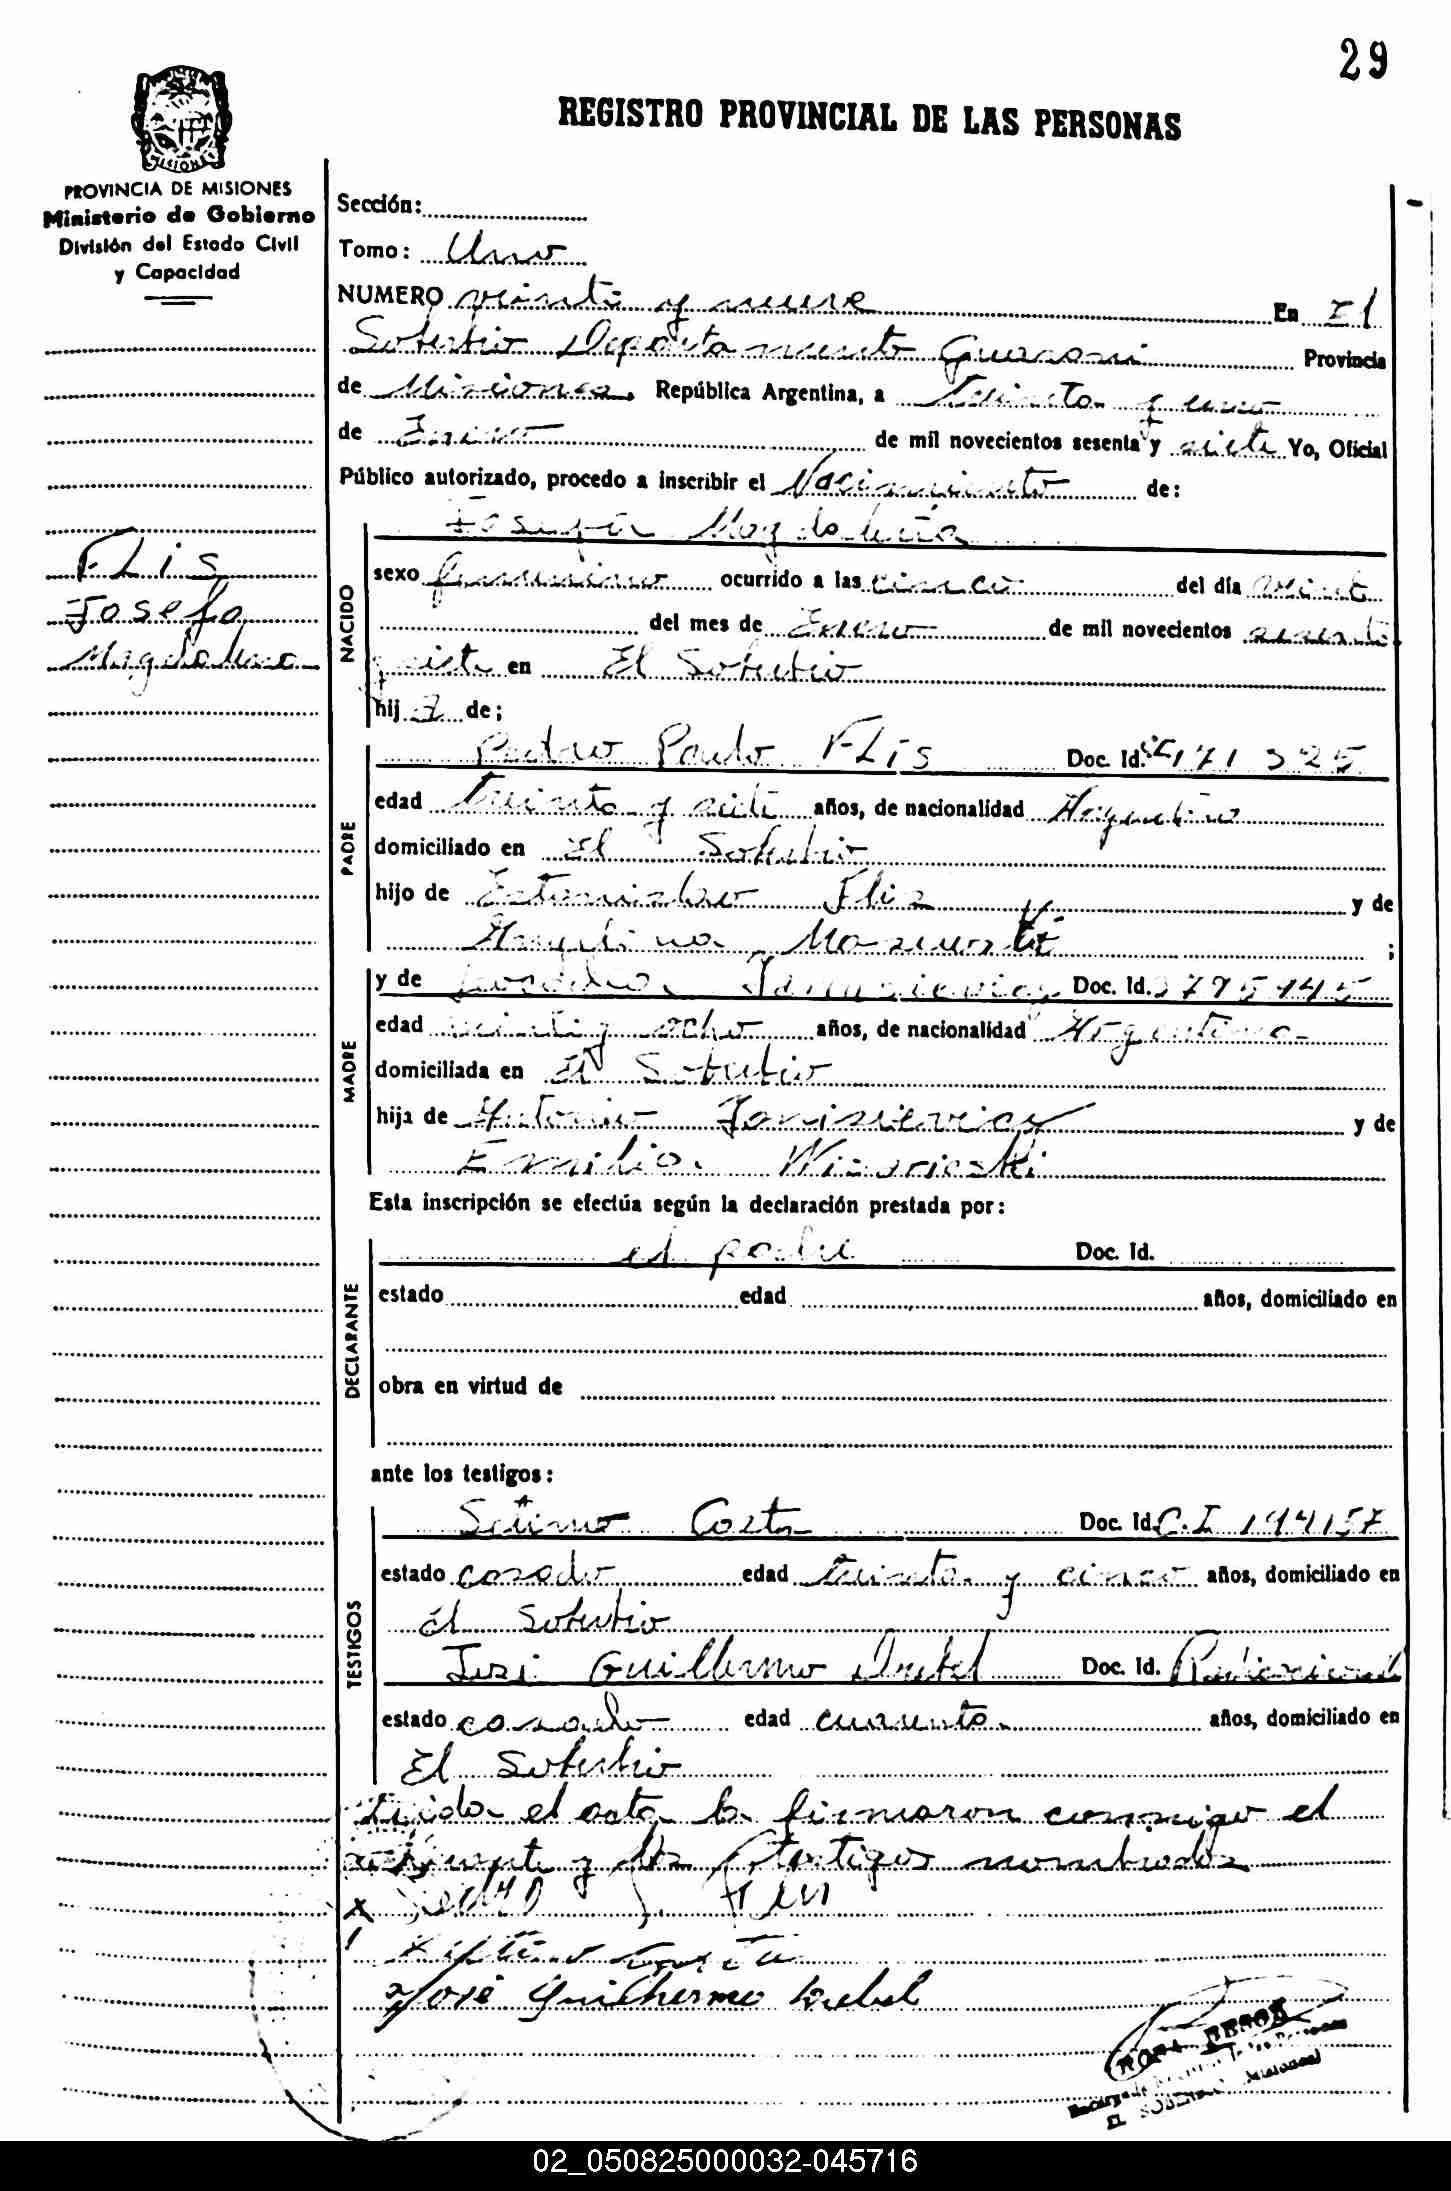 29
REGISTRO PROVINCIAL DE LAS PERSONAS
PROVINCIA DE MISIONES
Ministerio de Gobierno
División del Estado Civil
y Capacidad
Flis
Josefa
Magdalena
Sección:
Tomo: Uno
NUMERO veinti y nueve En El
Soberbio Departamento Guarani Provincia
de Misiones, República Argentina, a treinta y uno
de Enero de mil novecientos sesenta y siete Yo, Oficial
Público autorizado, procedo a inscribir el Nacimiento de:
NACIDO
Josefa Magdalena
sexo femenino ocurrido a las cinco del día
del mes de Enero de mil novecientos sesenta
y siete en El Soberbio
hij a de;
PADRE
Pedro Paulo Flis Doc. Id.
edad treinta y siete años, de nacionalidad Argentino
domiciliado en El Soberbio
hijo de Estanislao Flis y de
Angelina ;
MADRE
y de Doc. Id.
edad veinti y ocho años, de nacionalidad Argentina
domiciliada en El Soberbio
hija de Antonio y de
Emilia
Esta inscripción se efectúa según la declaración prestada por:
DECLARANTE
el padre Doc. Id.
estado edad años, domiciliado en
obra en virtud de
ante los testigos:
TESTIGOS
Setimo Costa Doc. Id. C.I 144157
estado casado edad treinta y cinco años, domiciliado en
El Soberbio
José Guillermo Doc. Id.
estado casado edad cuarenta años, domiciliado en
El Soberbio
Leida el acta la firmaron conmigo el
y los testigos nombrados
x Pedro P. Flis
Costa
José Guilhermo
EL SOBERBIO (Misiones)
02_050825000032-045716